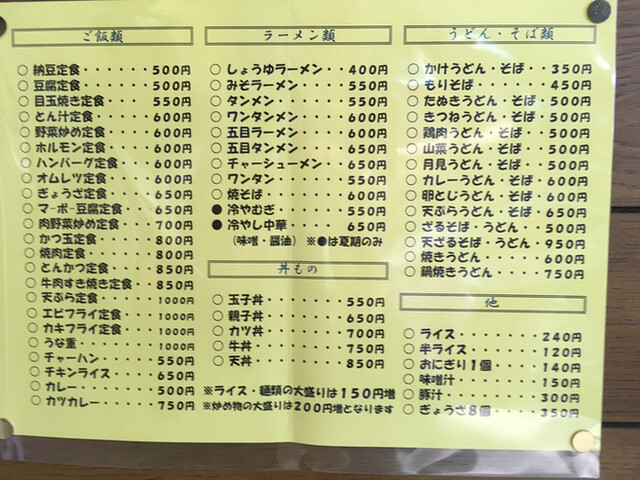 ご飯類
○ 納豆定食・・・・・・500円
○ 豆腐定食・・・・・・500円
○ 目玉焼き定食・・・550円
○ とん汁定食・・・・・600円
○ 野菜炒め定食・・・・600円
○ ホルモン定食・・・・600円
○ ハンバーグ定食・・・600円
○ オムレツ定食・・・・600円
○ ぎょうざ定食・・・・650円
○ マーボー豆腐定食・・・650円
○ 肉野菜炒め定食・・・700円
○ かつ玉定食・・・・・800円
○ 焼肉定食・・・・・・800円
○ とんかつ定食・・・・850円
○ 牛肉すき焼き定食・・850円
○ 天ぷら定食・・・・・1000円
○ エビフライ定食・・・1000円
○ カキフライ定食・・・1000円
○ うな重・・・・・・・1000円
○ チャーハン・・・・・550円
○ チキンライス・・・・650円
○ カレー・・・・・・・500円
○ カツカレー・・・・・750円
ラーメン類
○ しょうゆラーメン・・400円
○ みそラーメン・・・・550円
○ タンメン・・・・・・550円
○ ワンタンメン・・・・600円
○ 五目ラーメン・・・・650円
○ 五目タンメン・・・・650円
○ チャーシューメン・・650円
○ ワンタン・・・・・・550円
○ 焼そば・・・・・・・600円
● 冷やむぎ・・・・・・550円
● 冷やし中華・・・・・650円
（味噌・醤油）※●は夏期のみ
丼もの
○ 玉子丼・・・・・・・550円
○ 親子丼・・・・・・・650円
○ カツ丼・・・・・・・700円
○ 牛丼・・・・・・・・750円
○ 天丼・・・・・・・・850円
※ライス・麺類の大盛りは150円増
※炒め物の大盛りは200円増となります
うどん・そば類
○ かけうどん・そば・・350円
○ もりそば・・・・・・450円
○ たぬきうどん・そば・500円
○ きつねうどん・そば・500円
○ 鶏肉うどん・そば・・500円
○ 山菜うどん・そば・・500円
○ 月見うどん・そば・・500円
○ カレーうどん・そば・600円
○ 卵とじうどん・そば・600円
○ 天ぷらうどん・そば・650円
○ ざるそば・うどん・・500円
○ 天ざるそば・うどん・950円
○ 焼きうどん・・・・・600円
○ 鍋焼きうどん・・・・750円
他
○ ライス・・・・・・・240円
○ 半ライス・・・・・・120円
○ おにぎり1個・・・・140円
○ 味噌汁・・・・・・・150円
○ 豚汁・・・・・・・・300円
○ ぎょうざ8個・・・・350円